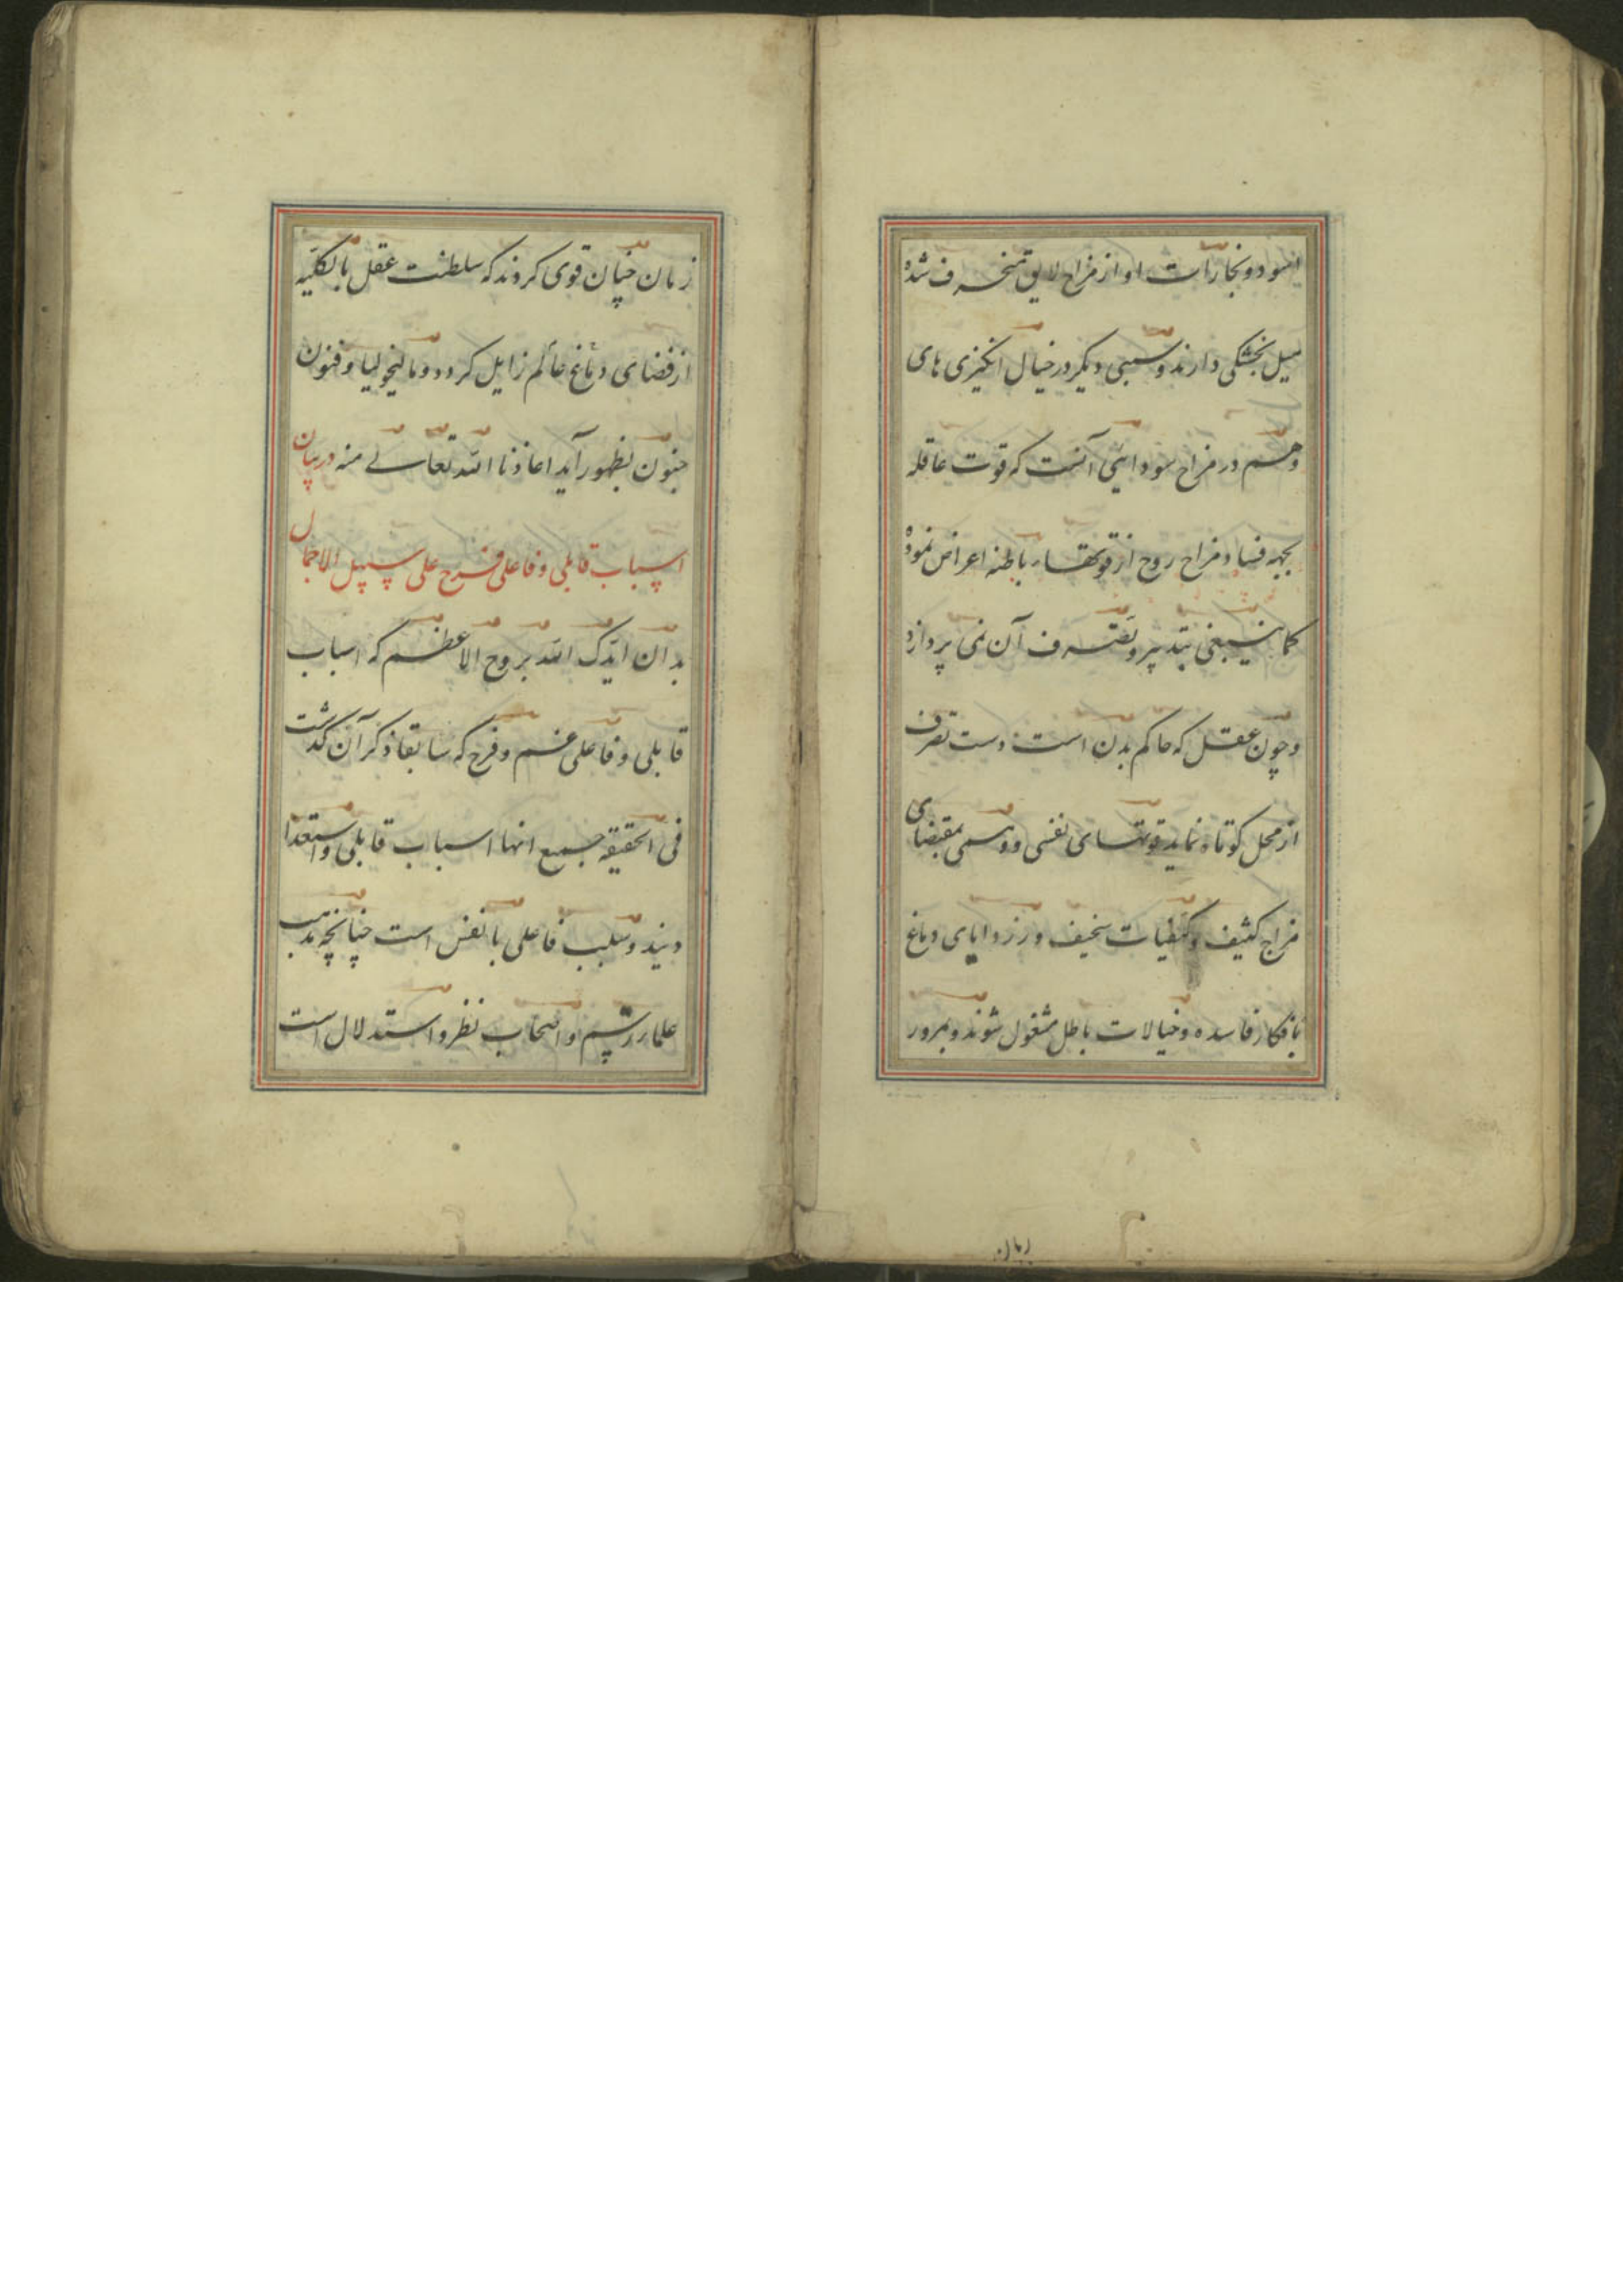 اسود و بخارات او از مزاج لایق منحرف شده
میل بخشکی دارند و سببی دیگر در خیال انگیزی های
وهم در مزاج سودایی آنست که قوت عاقله
بجهه فساد مزاج روح از قوتهاء باطنه اعراض نموده
کما ینبغی بتدبیر و تصرف آن نمی پردازد
و چون عقل که حاکم بدن است دست تصرف
از محل کوتاه نماید قوتهای نفسی و وهمی بمقتضای
مزاج کثیف و کیفیات سخیف در زوایای دماغ
بافکار فاسده و خیالات باطل مشغول شوند و بمرور
زمان
زمان چنان قوی کردند که سلطنت عقل بالکلیه
از فضای دماغ عالم زایل کردد و مالیخولیا و فنون
جنون بظهور آید اعاذنا الله تعالی منه در بیان
اسباب قابلی و فاعلی فرح علی سبیل الاجمال
بدان ایدک الله بروح الاعظم که اسباب
قابلی و فاعلی غم و فرح که سابقا ذکر آن کذشت
فی الحقیقه جمیع انها اسباب قابلی و استعدا
دیند و سبب فاعلی بالنفس است چنانچه مذهب
علماء رسم و اصحاب نظر و استدلال است